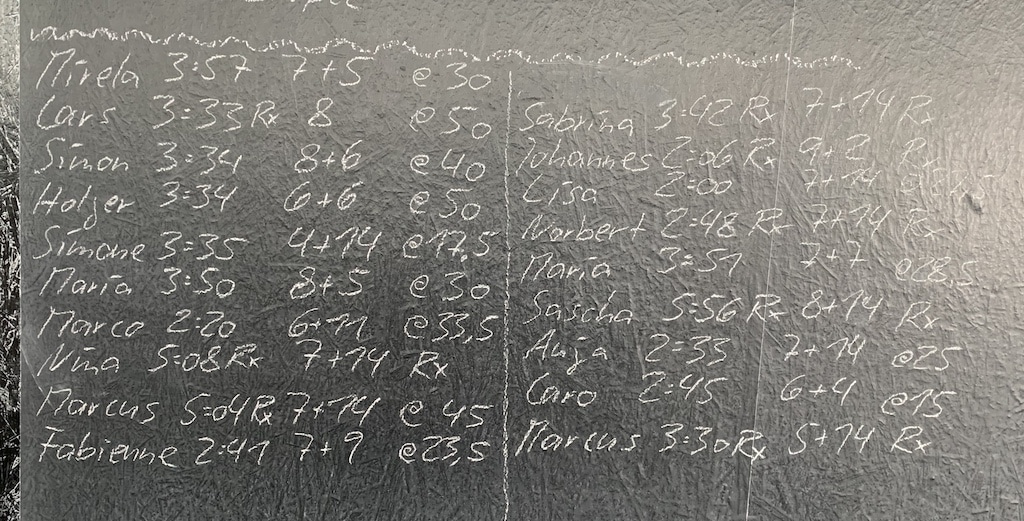 Mirela 3:57 7+5 @30
Lars 3:33 Rx 8 @50
Simon 3:34 8+6 @40
Holger 3:34 6+6 @50
Simone 3:35 4+14 @17,5
Maria 3:50 8+5 @30
Marco 2:20 6+11 @33,5
Nina 5:08 Rx 7+14 Rx
Marcus 5:04 Rx 7+14 @45
Fabienne 2:41 7+9 @23,5
Sabrina 3:42 Rx 7+14 Rx
Johannes 2:06 Rx 9+2 Rx
Lisa 2:00 7+14
Norbert 2:48 Rx 7+14 Rx
Maria 3:51 7+7 @28,5
Sascha 5:56 Rx 8+14 Rx
Anja 2:33 7+14 @25
Caro 2:45 6+4 @15
Marcus 3:30 Rx 5+14 Rx